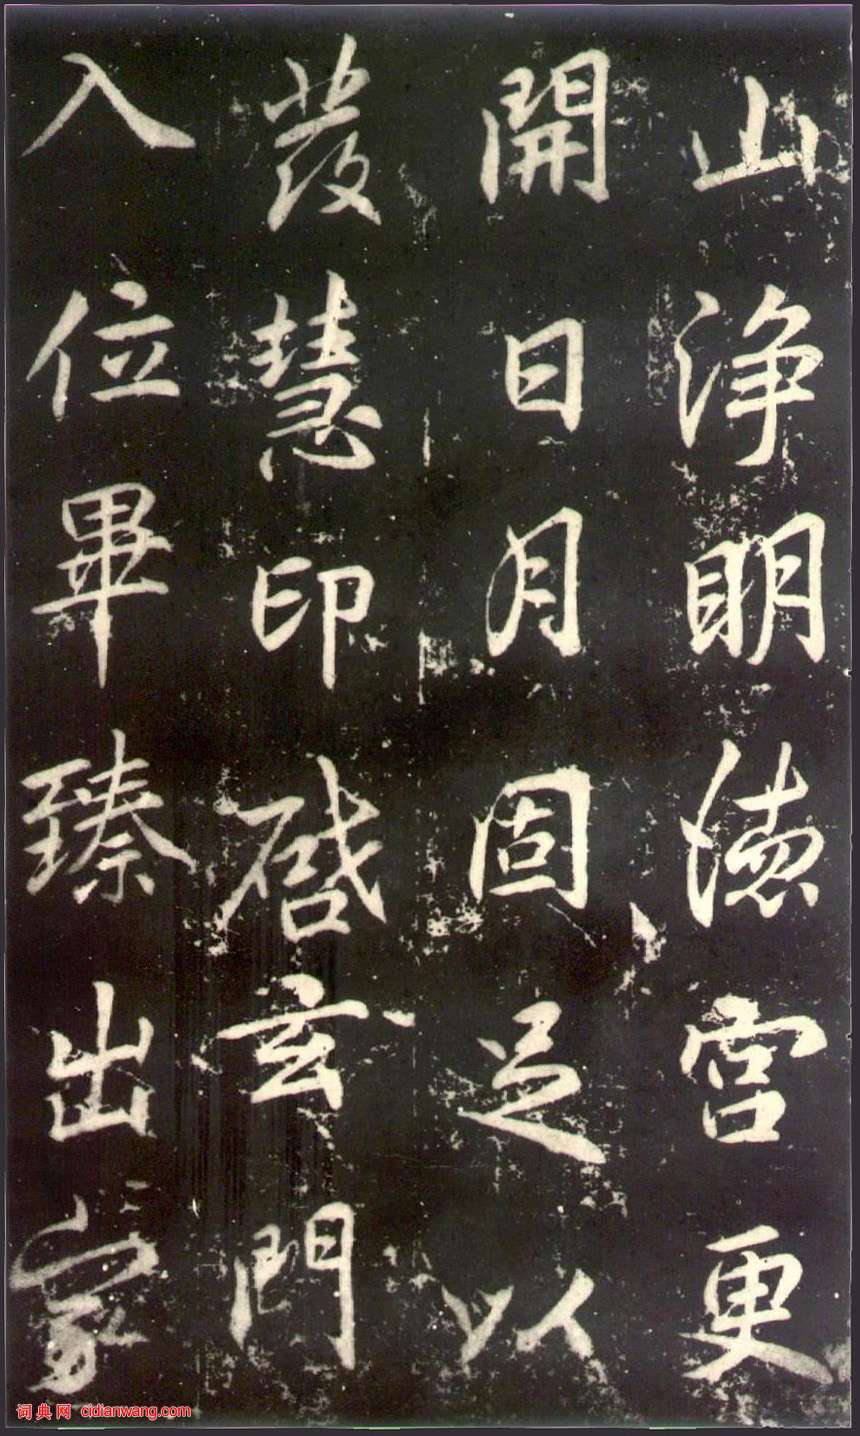 山浄明德宮更
開日月固足以
發慧印啓玄門
入位畢臻出家
词典网 cidianwang.com